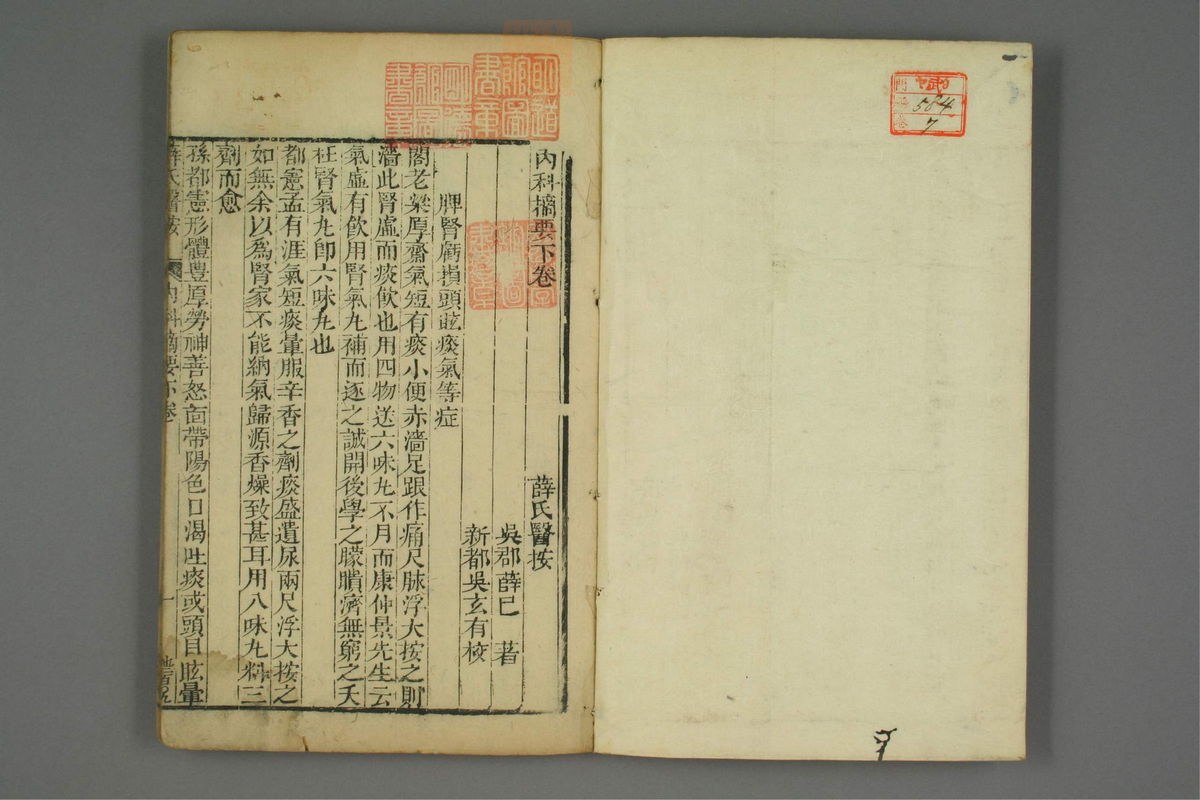 内科摘要下卷
薛氏醫按
吳郡薛已 著
新都吳玄有校
脾腎虧損頭眩痰氣等症
閣老梁厚齋氣短有痰小便赤濇足跟作痛尺脉浮大按之則
濇此腎虛而痰飲也用四物送六味丸不月而康仲景先生云
氣虛有飲用腎氣丸補而逐之誠開後學之朦瞶濟無窮之夭
枉腎氣丸即六味丸也
都憲孟有涯氣短痰暈服辛香之劑痰盛遺尿兩尺浮大按之
如無余以爲腎家不能納氣歸源香燥致甚耳用八味丸料三
劑而愈
孫都憲形體豐厚勞神善怒面帶陽色口渴吐痰或頭目眩暈
薛氏醫按
内科摘要下卷
一
584
7